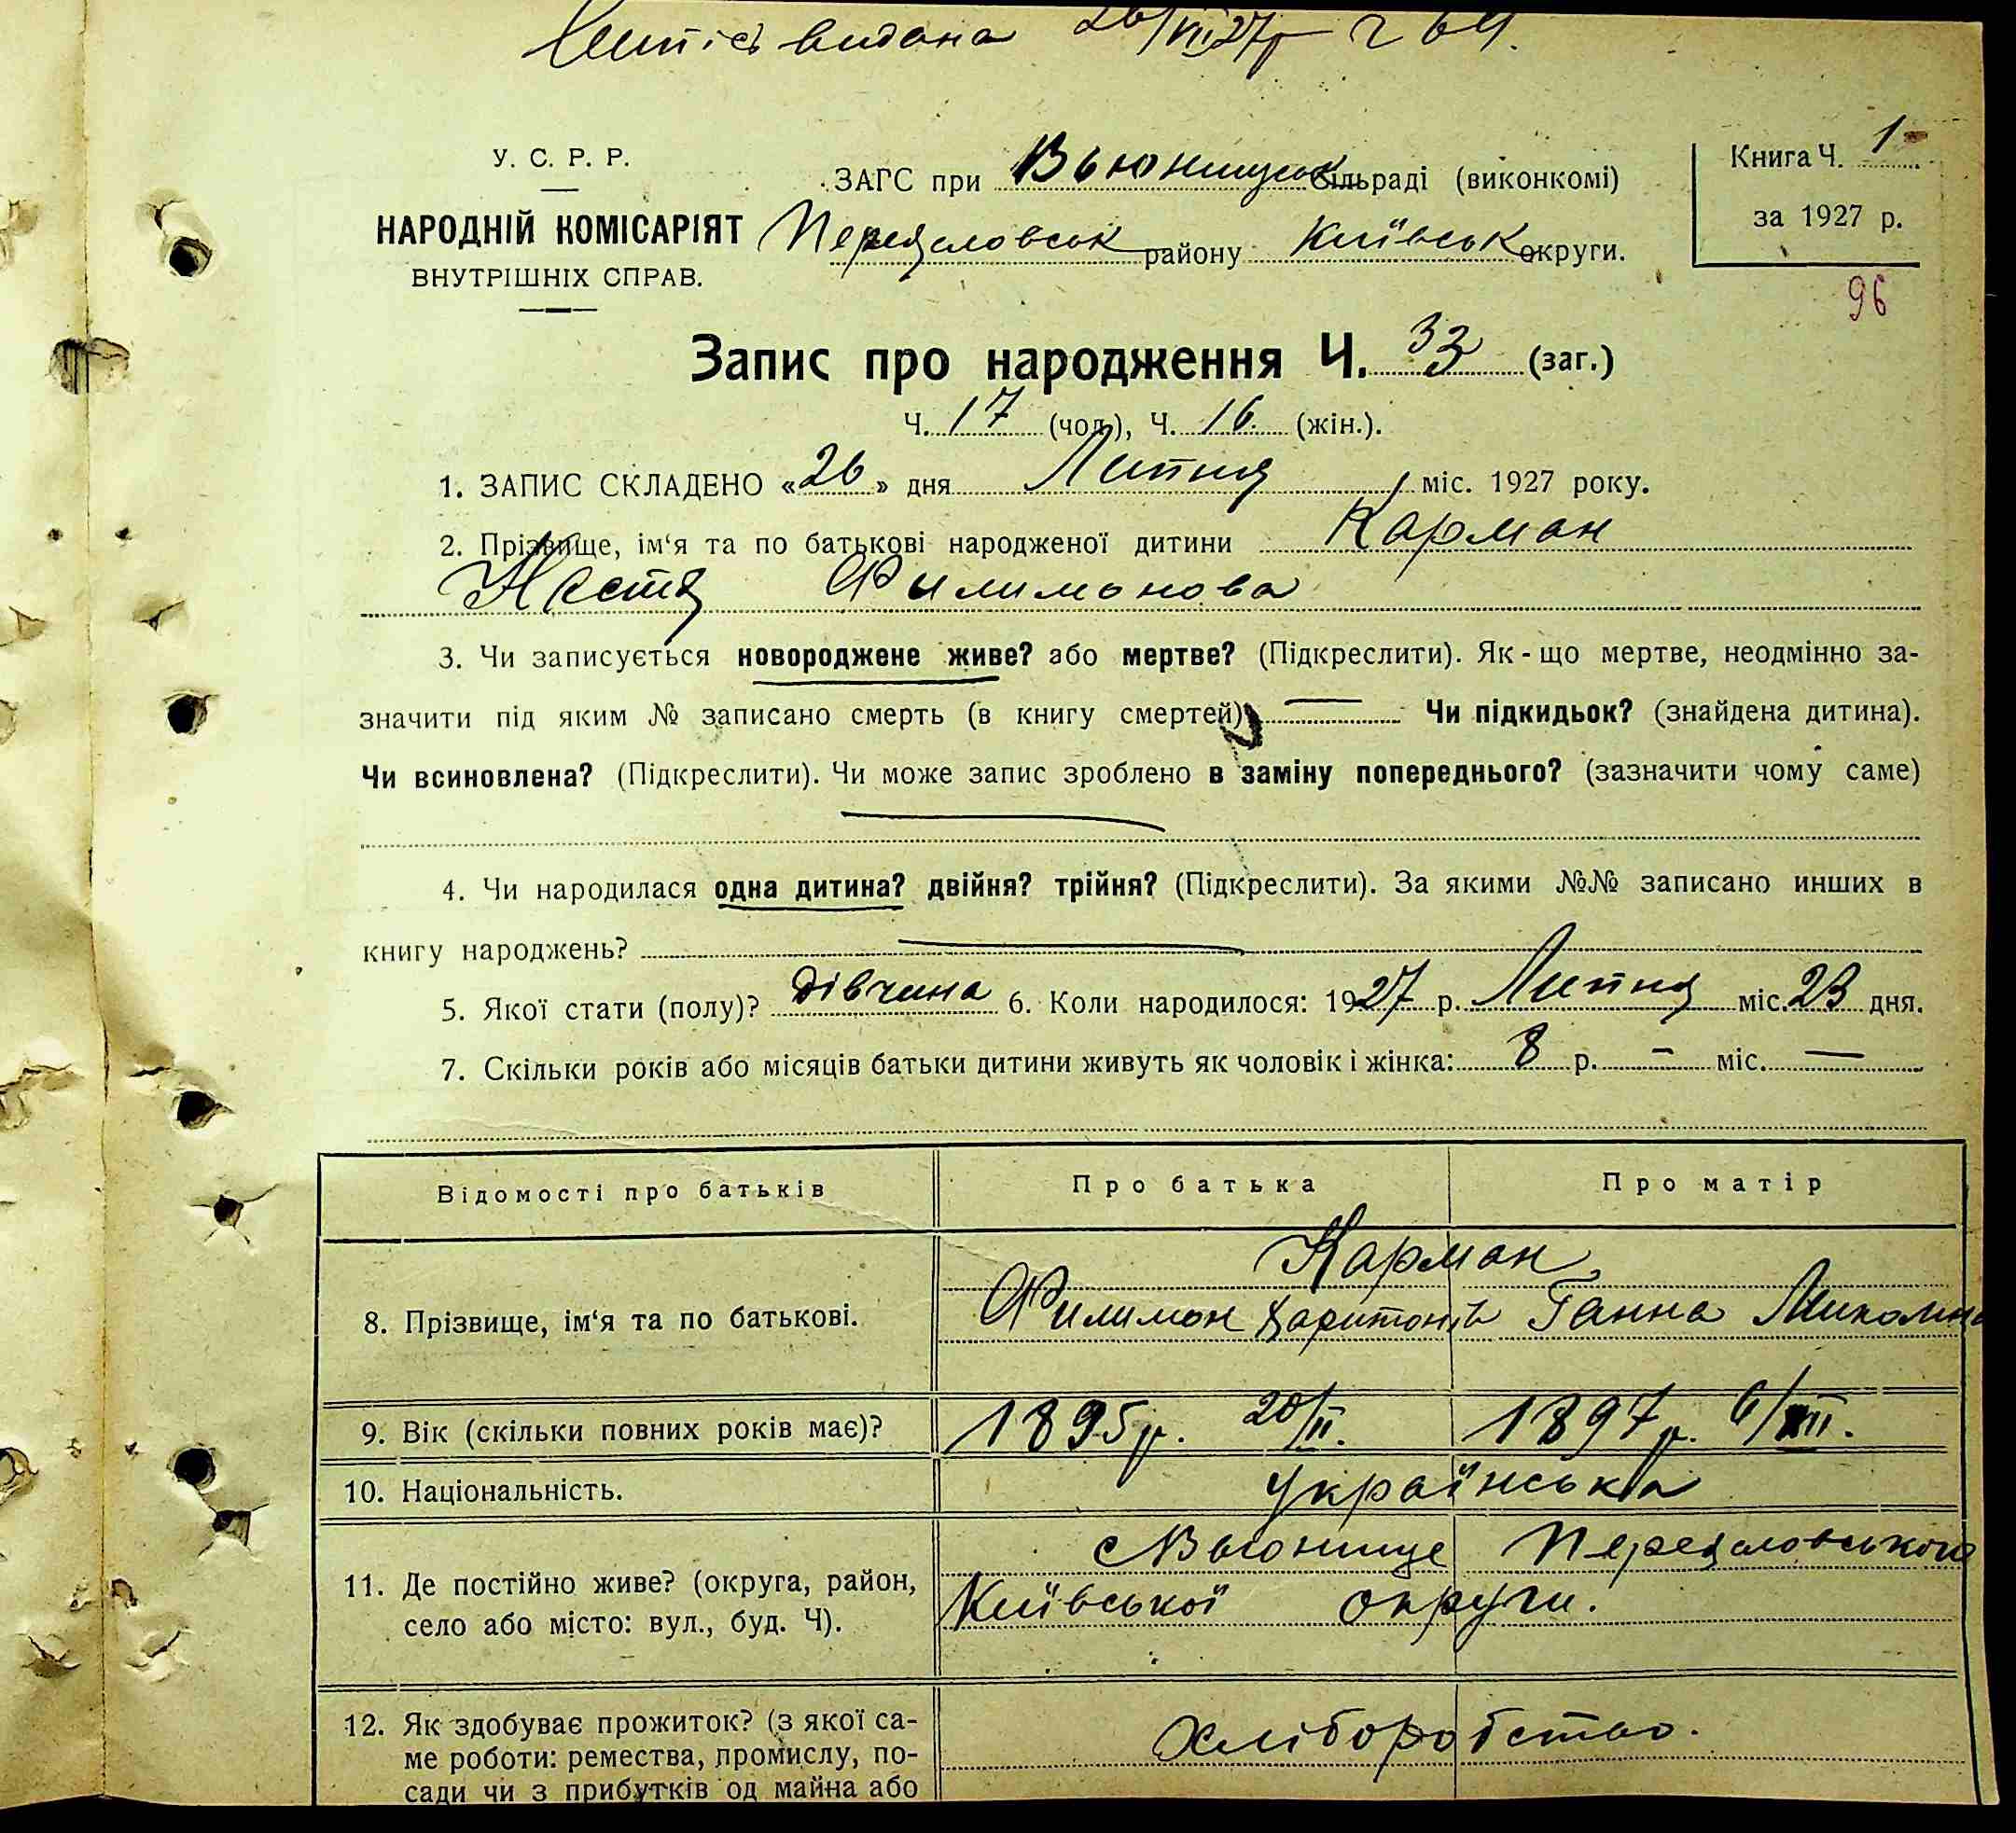 Випись видана 26/VII 27 р ч 64.
У. С. Р. Р.
НАРОДНІЙ КОМІСАРІЯТ
ВНУТРІШНІХ СПРАВ.
ЗАГС при Вьюницьк сільраді (виконкомі)
Переяловськ району Київськ округи.
Книга Ч. 1
за 1927 р.
96
Запис про народження Ч. 33 (заг.)
Ч. 17 (чол), Ч. 16. (жін.).
1. ЗАПИС СКЛАДЕНО «26» дня Липня міс. 1927 року.
2. Прізвище, ім‘я та по батькові народженої дитини Карман
Настя Филимонова
3. Чи записується новороджене живе? або мертве? (Підкреслити). Як - що мертве, неодмінно за-
значити під яким № записано смерть (в книгу смертей) Чи підкидьок? (знайдена дитина).
Чи всиновлена? (Підкреслити). Чи може запис зроблено в заміну попереднього? (зазначити чому саме)
4. Чи народилася одна дитина? двійня? трійня? (Підкреслити). За якими №№ записано инших в
книгу народжень?
5. Якої стати (полу)? дівчина 6. Коли народилося: 1927 р. Липня міс. 23 дня.
7. Скільки років або місяців батьки дитини живуть як чоловік і жінка: 8 р. – міс. —
Відомості про батьків Про батька Про матір
Карман
8. Прізвище, ім‘я та по батькові. Филимон Харитонів Ганна Миколина
9. Вік (скільки повних років має)? 1895 р. 20/II. 1897 р. 6/XII.
10. Національність. Українська
с Вьюнище Переяловського
11. Де постійно живе? (округа, район, Київської округи.
село або місто: вул., буд. Ч).
12. Як здобуває прожиток? (з якої са- Хліборобство.
ме роботи: ремества, промислу, по-
сади чи з прибутків од майна або